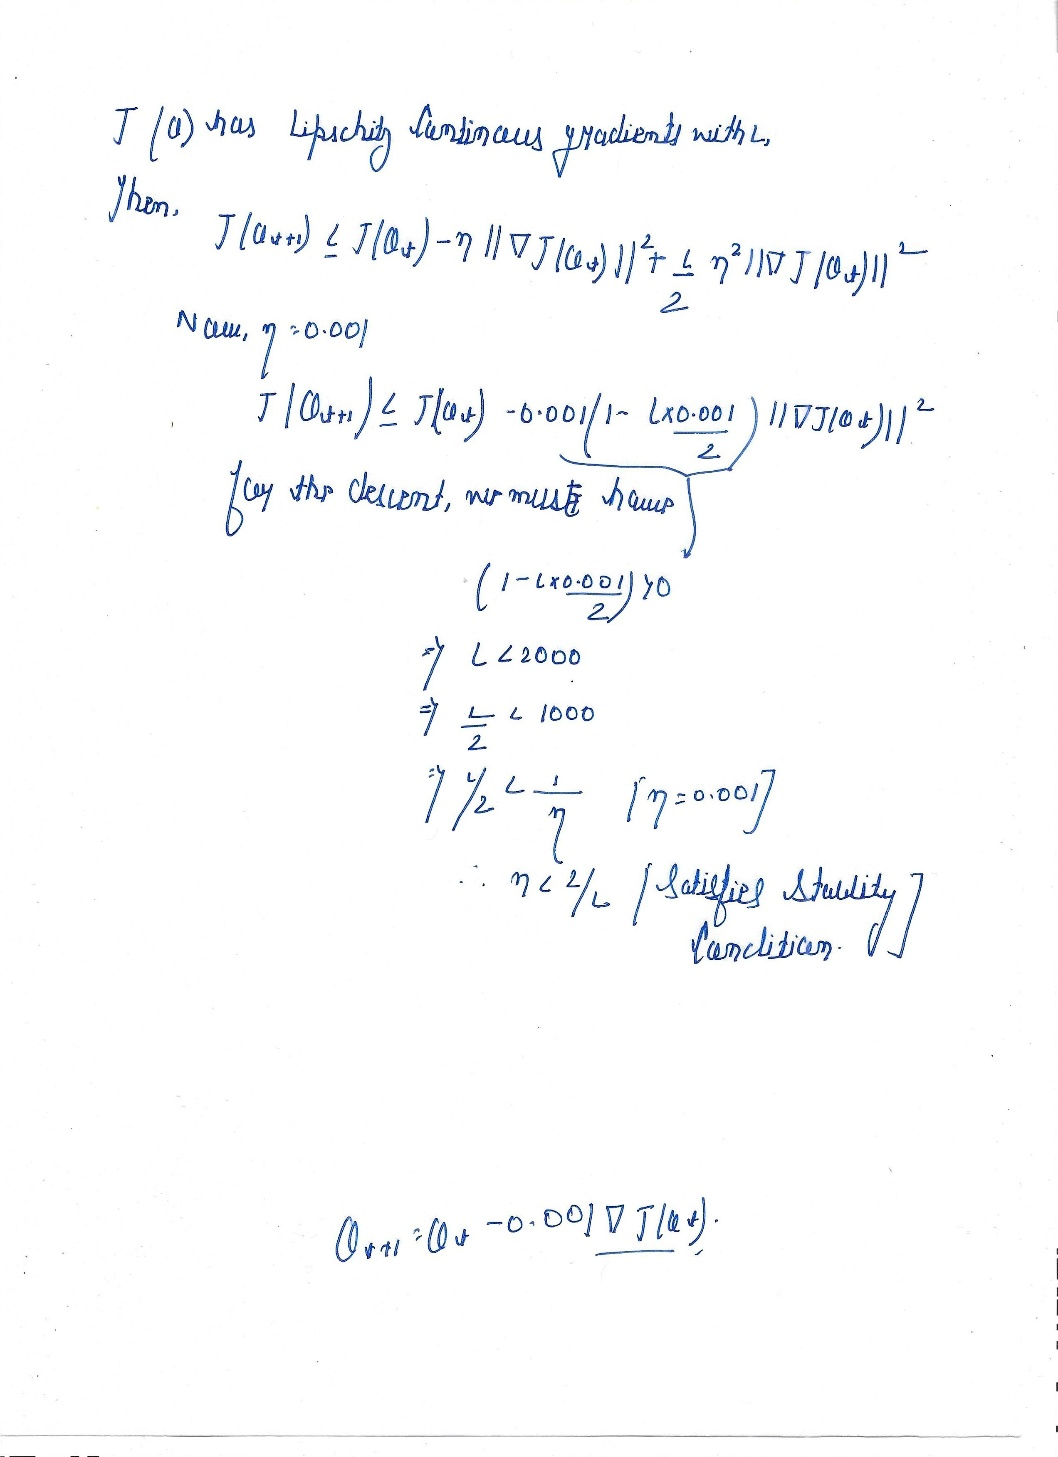 J(θ) has Lipschitz Continuous gradients with L,
Then,
J(θt+1) ≤ J(θt) - η ||∇J(θt)||² + L/2 η² ||∇J(θt)||²
Now, η = 0.001
J(θt+1) ≤ J(θt) - 0.001(1 - L×0.001/2) ||∇J(θt)||²
for the descent, we must have
(1 - L×0.001/2) > 0
⇒ L < 2000
⇒ L/2 < 1000
⇒ L/2 < 1/η [η = 0.001]
∴ η < 2/L [Satisfies Stability
Condition.]
θt+1 = θt - 0.001 ∇J(θt).